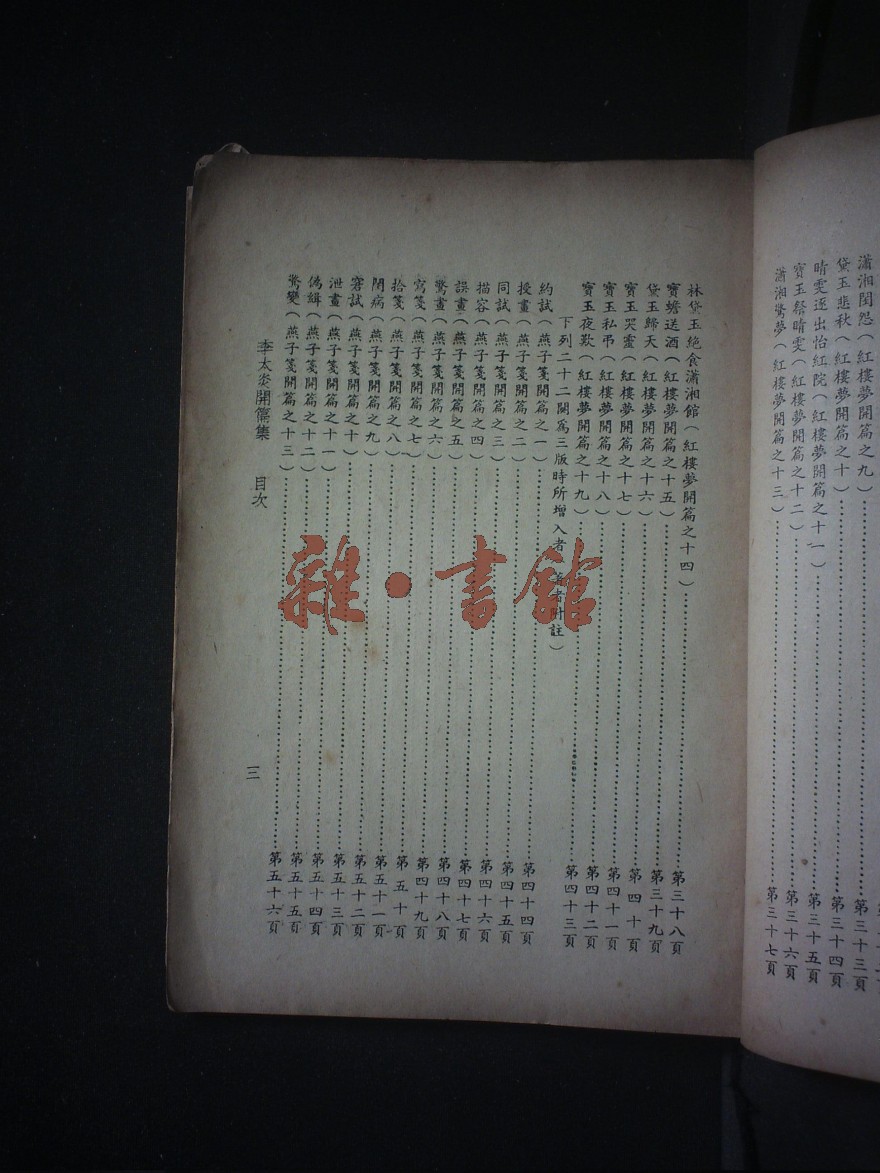 瀟湘閨怨（紅樓夢開篇之九）……第三十三頁
黛玉悲秋（紅樓夢開篇之十）……第三十四頁
晴雯逐出怡紅院（紅樓夢開篇之十一）……第三十五頁
寶玉祭晴雯（紅樓夢開篇之十二）……第三十六頁
瀟湘驚夢（紅樓夢開篇之十三）……第三十七頁
林黛玉絕食瀟湘館（紅樓夢開篇之十四）……第三十八頁
寶蟾送酒（紅樓夢開篇之十五）……第三十九頁
黛玉歸天（紅樓夢開篇之十六）……第四十頁
寶玉哭靈（紅樓夢開篇之十七）……第四十一頁
寶玉私弔（紅樓夢開篇之十八）……第四十二頁
寶玉夜歎（紅樓夢開篇之十九）……第四十三頁
下列二十二闋為三版時所增入者（著者附註）
約試（燕子箋開篇之一）……第四十四頁
授畫（燕子箋開篇之二）……第四十五頁
同試（燕子箋開篇之三）……第四十六頁
描容（燕子箋開篇之四）……第四十七頁
誤畫（燕子箋開篇之五）……第四十八頁
驚畫（燕子箋開篇之六）……第四十九頁
寫箋（燕子箋開篇之七）……第五十頁
拾箋（燕子箋開篇之八）……第五十一頁
鬧病（燕子箋開篇之九）……第五十二頁
窘試（燕子箋開篇之十）……第五十三頁
泄畫（燕子箋開篇之十一）……第五十四頁
偽緝（燕子箋開篇之十二）……第五十五頁
驚變（燕子箋開篇之十三）……第五十六頁
李太炎開篇集 目次
三
雜·書館